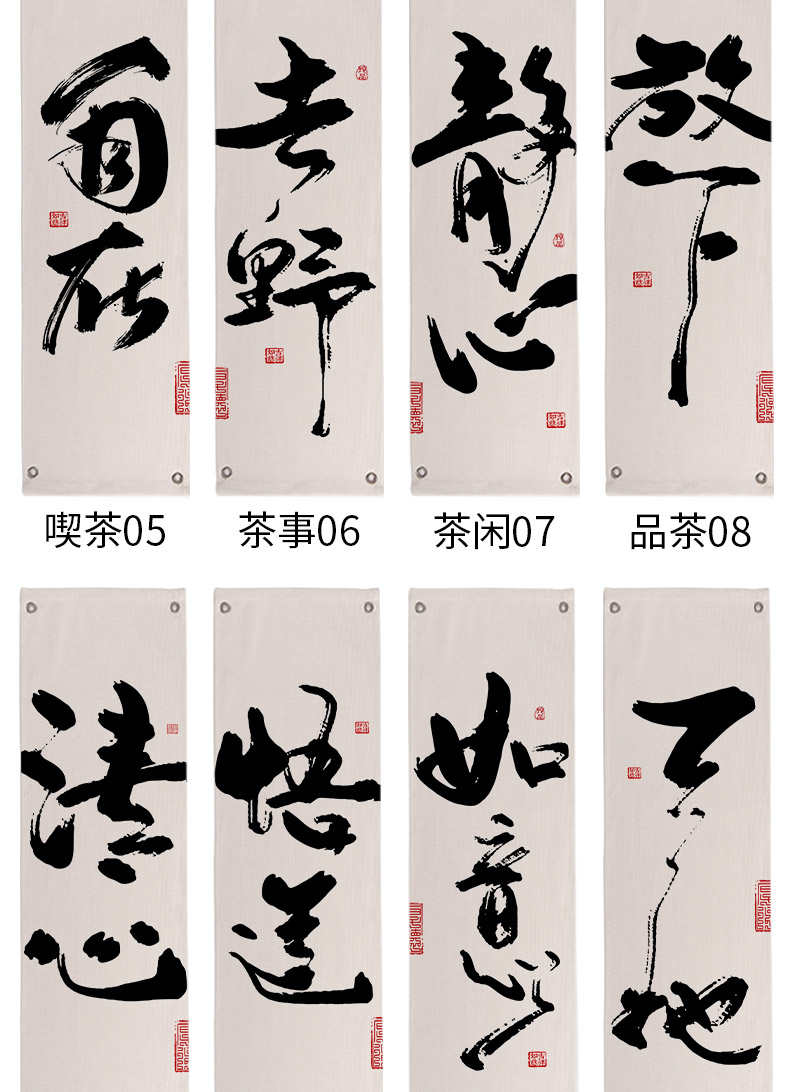 自在
去野
静心
放下
喫茶05
茶事06
茶闲07
品茶08
清心
悟道
如意